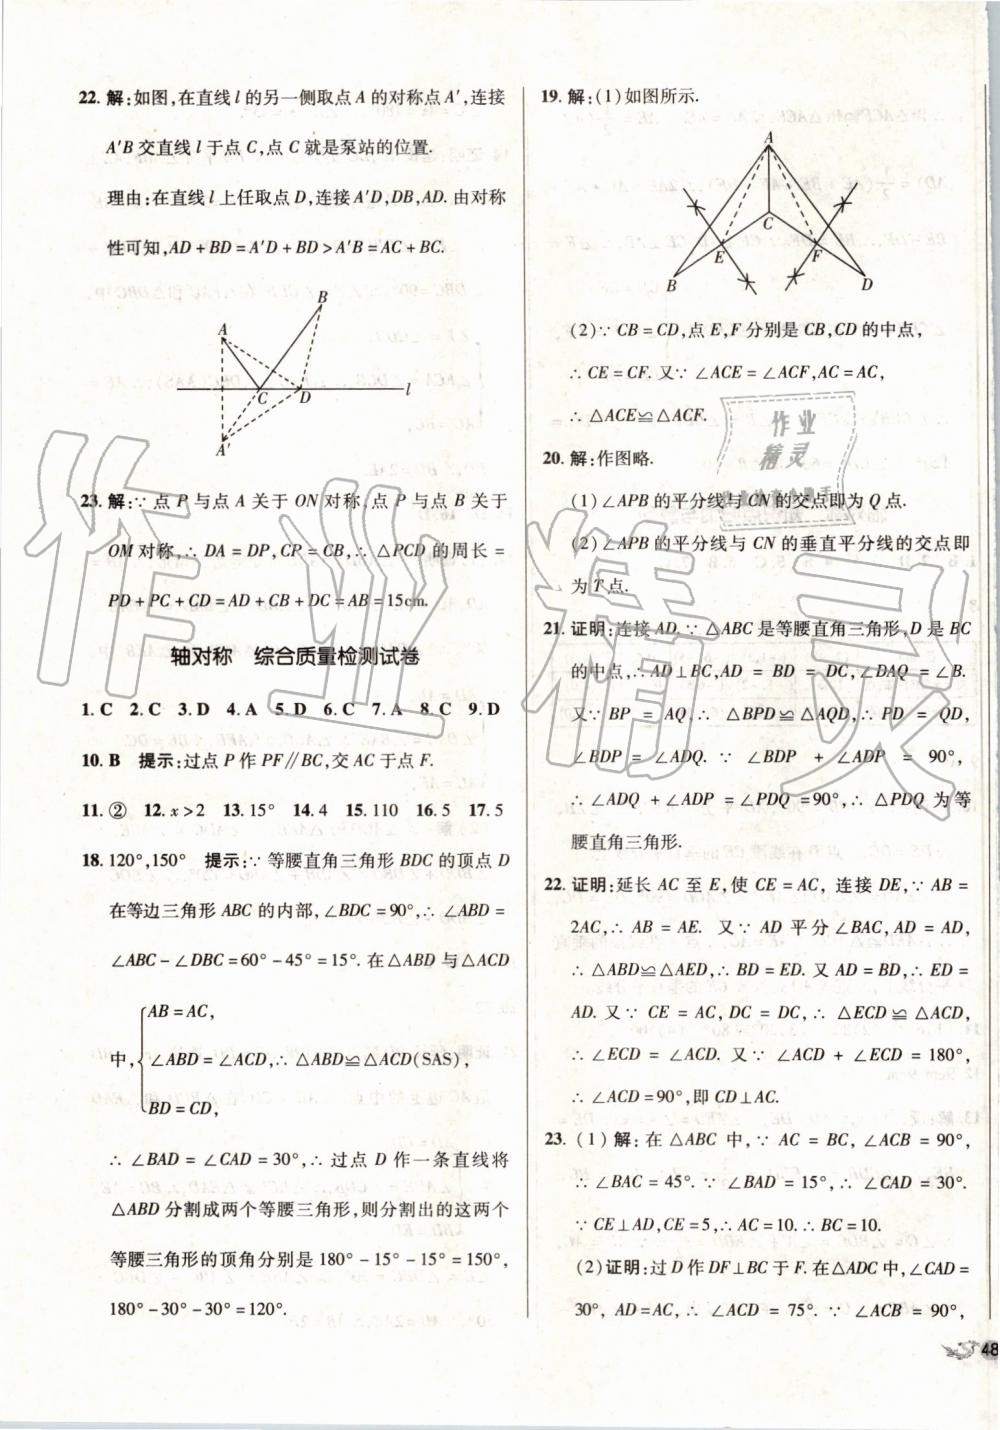 22. 解:如图,在直线 l 的另一侧取点 A 的对称点 A′,连接
A′B 交直线 l 于点 C,点 C 就是泵站的位置.
理由:在直线 l 上任取点 D,连接 A′D,DB,AD. 由对称
性可知,AD + BD = A′D + BD > A′B = AC + BC.
B
A
C D l
A′
23. 解:∵ 点 P 与点 A 关于 ON 对称,点 P 与点 B 关于
OM 对称,∴ DA = DP,CP = CB,∴ △PCD 的周长 =
PD + PC + CD = AD + CB + DC = AB = 15cm.
轴对称 综合质量检测试卷
1. C 2. C 3. D 4. A 5. D 6. C 7. A 8. C 9. D
10. B 提示:过点 P 作 PF∥BC,交 AC 于点 F.
11. ② 12. x > 2 13. 15° 14. 4 15. 110 16. 5 17. 5
18. 120°,150° 提示:∵ 等腰直角三角形 BDC 的顶点 D
在等边三角形 ABC 的内部,∠BDC = 90°,∴ ∠ABD =
∠ABC - ∠DBC = 60° - 45° = 15°. 在△ABD 与△ACD
AB = AC,
中, ∠ABD = ∠ACD,∴ △ABD≌△ACD(SAS),
BD = CD,
∴ ∠BAD = ∠CAD = 30°,∴ 过点 D 作一条直线将
△ABD 分割成两个等腰三角形,则分割出的这两个
等腰三角形的顶角分别是 180° - 15° - 15° = 150°,
180° - 30° - 30° = 120°.
19. 解:(1)如图所示.
A
C
E F
B D
(2)∵ CB = CD,点 E,F 分别是 CB,CD 的中点,
∴ CE = CF. 又∵ ∠ACE = ∠ACF,AC = AC,
∴ △ACE≌△ACF.
20. 解:作图略.
(1)∠APB 的平分线与 CN 的交点即为 Q 点.
(2)∠APB 的平分线与 CN 的垂直平分线的交点即
为 T 点.
21. 证明:连接 AD. ∵ △ABC 是等腰直角三角形,D 是 BC
的中点,∴ AD⊥BC,AD = BD = DC,∠DAQ = ∠B.
又∵ BP = AQ,∴ △BPD≌△AQD,∴ PD = QD,
∠BDP = ∠ADQ. ∵ ∠BDP + ∠ADP = 90°,
∴ ∠ADQ + ∠ADP = ∠PDQ = 90°,∴ △PDQ 为等
腰直角三角形.
22. 证明:延长 AC 至 E,使 CE = AC,连接 DE,∵ AB =
2AC,∴ AB = AE. 又∵ AD 平分∠BAC,AD = AD,
∴ △ABD≌△AED,∴ BD = ED. 又 AD = BD,∴ ED =
AD. 又∵ CE = AC,DC = DC,∴ △ECD ≌ △ACD,
∴ ∠ECD = ∠ACD. 又∵ ∠ACD + ∠ECD = 180°,
∴ ∠ACD = 90°,即 CD⊥AC.
23. (1) 解:在△ABC 中,∵ AC = BC,∠ACB = 90°,
∴ ∠BAC = 45°. ∵ ∠BAD = 15°,∴ ∠CAD = 30°.
∵ CE⊥AD,CE = 5,∴ AC = 10. ∴ BC = 10.
(2)证明:过 D 作 DF⊥BC 于 F. 在△ADC 中,∠CAD =
30°, AD = AC,∴ ∠ACD = 75°. ∵ ∠ACB = 90°,
48
作业精灵
作业
精灵